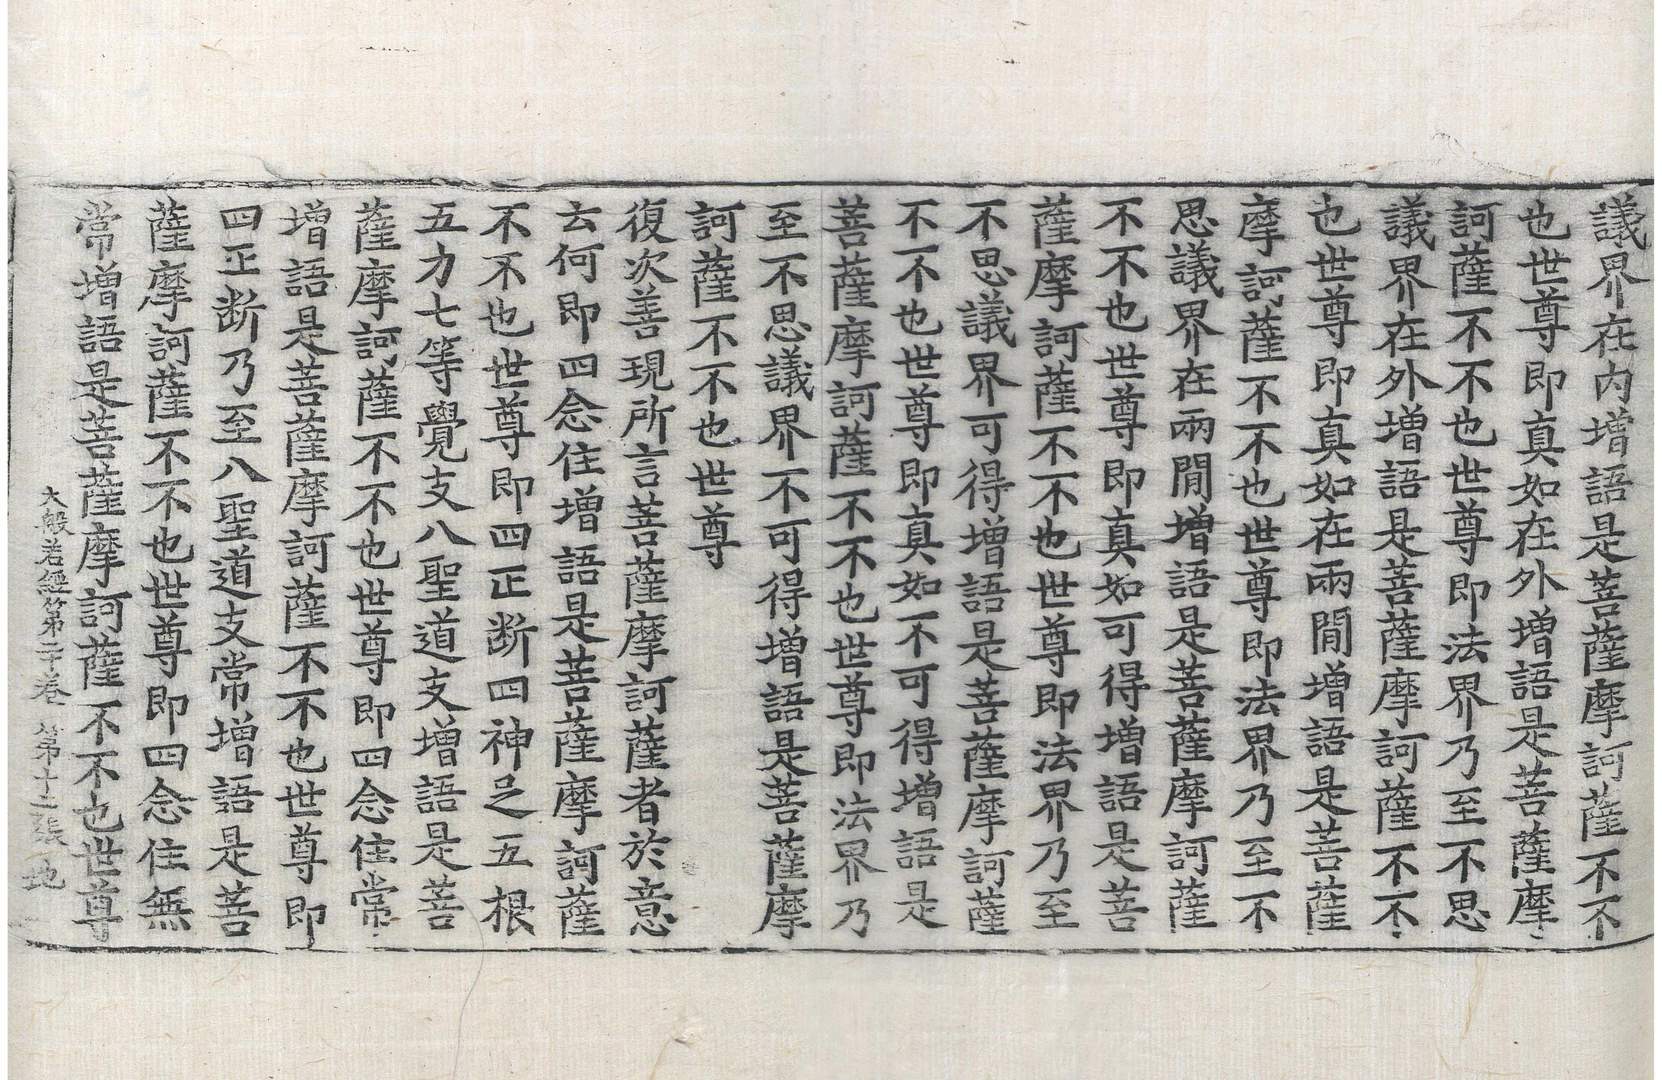 議界在内增語是菩薩摩訶薩不不
也世尊即真如在外增語是菩薩摩
訶薩不不也世尊即法界乃至不思
議界在外增語是菩薩摩訶薩不不
也世尊即真如在兩閒增語是菩薩
摩訶薩不不也世尊即法界乃至不
思議界在兩閒增語是菩薩摩訶薩
不不也世尊即真如可得增語是菩
薩摩訶薩不不也世尊即法界乃至
不思議界可得增語是菩薩摩訶薩
不不也世尊即真如不可得增語是
菩薩摩訶薩不不也世尊即法界乃
至不思議界不可得增語是菩薩摩
訶薩不不也世尊
復次善現所言菩薩摩訶薩者於意
云何即四念住增語是菩薩摩訶薩
不不也世尊即四正断四神足五根
五力七等覺支八聖道支增語是菩
薩摩訶薩不不也世尊即四念住常
增語是菩薩摩訶薩不不也世尊即
四正断乃至八聖道支常增語是菩
薩摩訶薩不不也世尊即四念住無
常增語是菩薩摩訶薩不不也世尊
大般若經第二十卷 第十二張 地